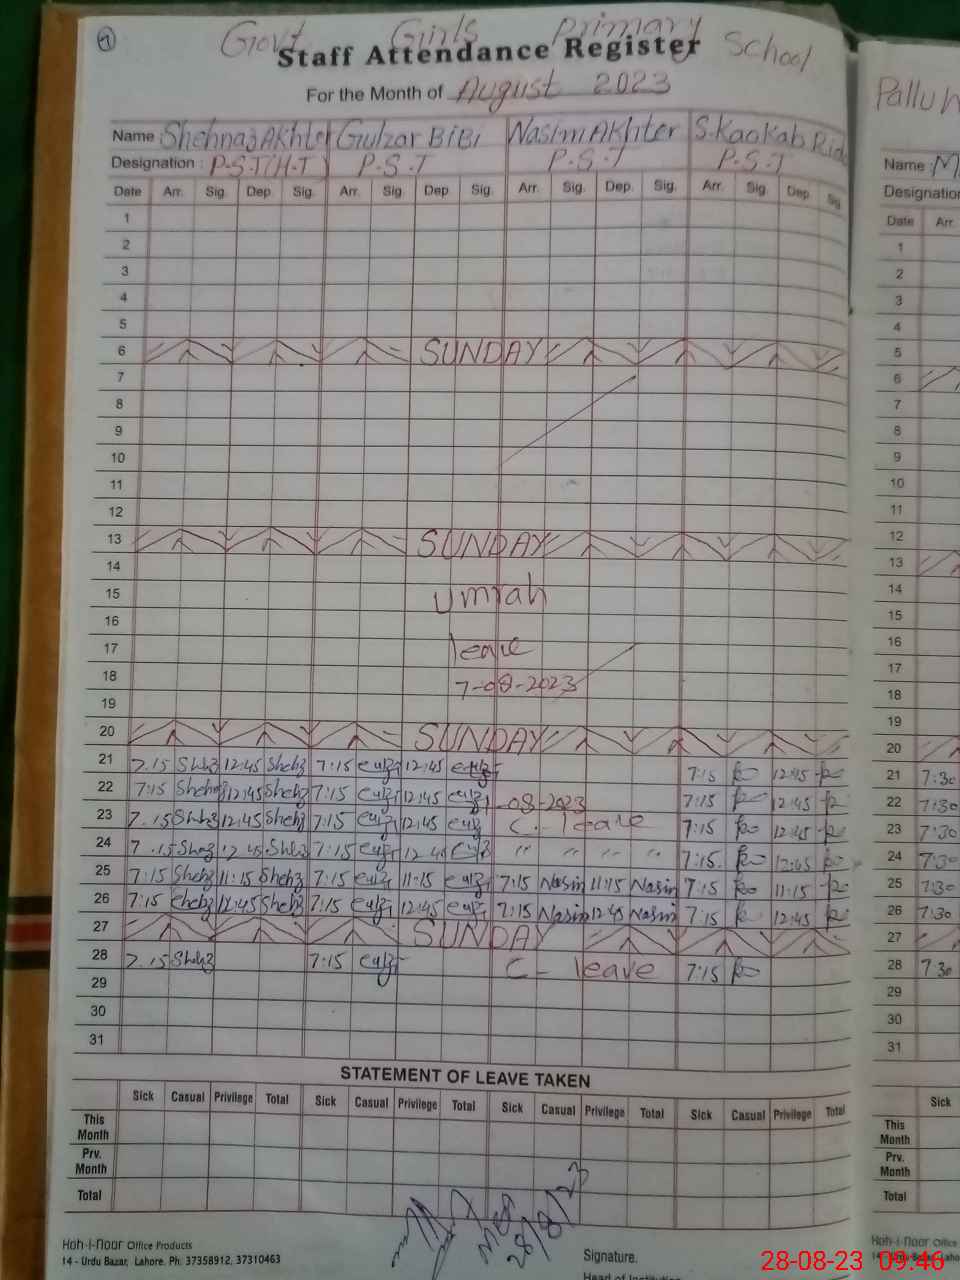 Govt Girls Primary School
Staff Attendance Register
For the Month of August 2023
Name : Shehnaz Akhter Gulzar BiBi Nasim Akhter S. Kaokab
Designation : P.S.T(H.T) P.S.T P.S.T P.S.T
Date Arr. Sig. Dep. Sig. Arr. Sig. Dep. Sig. Arr. Sig. Dep. Sig. Arr. Sig. Dep. Sig
1
2
3
4
5
6 SUNDAY
7
8
9
10
11
12
13 SUNDAY
14
15 Umrah
16
17 leave
18 7-08-2023
19
20 SUNDAY
21 7.15 Shehz 12:45 Shehz 7:15 12:45 7:15 12:45
22 7:15 Shehz 12:45 Shehz 7:15 12:45 -08-2023 7:15 12:45
23 7.15 Shehz 12:45 Shehz 7:15 12:45 C.- leave 7:15 12:45
24 7.15 Shehz 12:45 Shehz 7:15 12:45 " " " " 7:15. 12:45
25 7:15 Shehz 11:15 Shehz 7:15 11:15 7:15 Nasim 11:15 Nasim 7:15 11:15
26 7:15 Shehz 12:45 Shehz 7:15 12:45 7:15 Nasim 12:45 Nasim 7:15 12:45
27 SUNDAY
28 7.15 Shehz 7:15 C- leave 7:15
29
30
31
STATEMENT OF LEAVE TAKEN
Sick Casual Privilege Total Sick Casual Privilege Total Sick Casual Privilege Total Sick Casual Privilege Total
This Month
Prv. Month
Total
28/8/23
Koh-i-Noor Office Products
14 - Urdu Bazar, Lahore. Ph: 37358912, 37310463
Signature.
Head of Institution
Name :
Designation
Date Arr.
1
2
3
4
5
6
7
8
9
10
11
12
13
14
15
16
17
18
19
20
21 7:30
22 7:30
23 7:30
24 7:30
25 7:30
26 7:30
27
28 7:30
29
30
31
Sick
This Month
Prv. Month
Total
Koh-i-Noor Office
14 - Urdu Bazar,
28-08-23 09:46